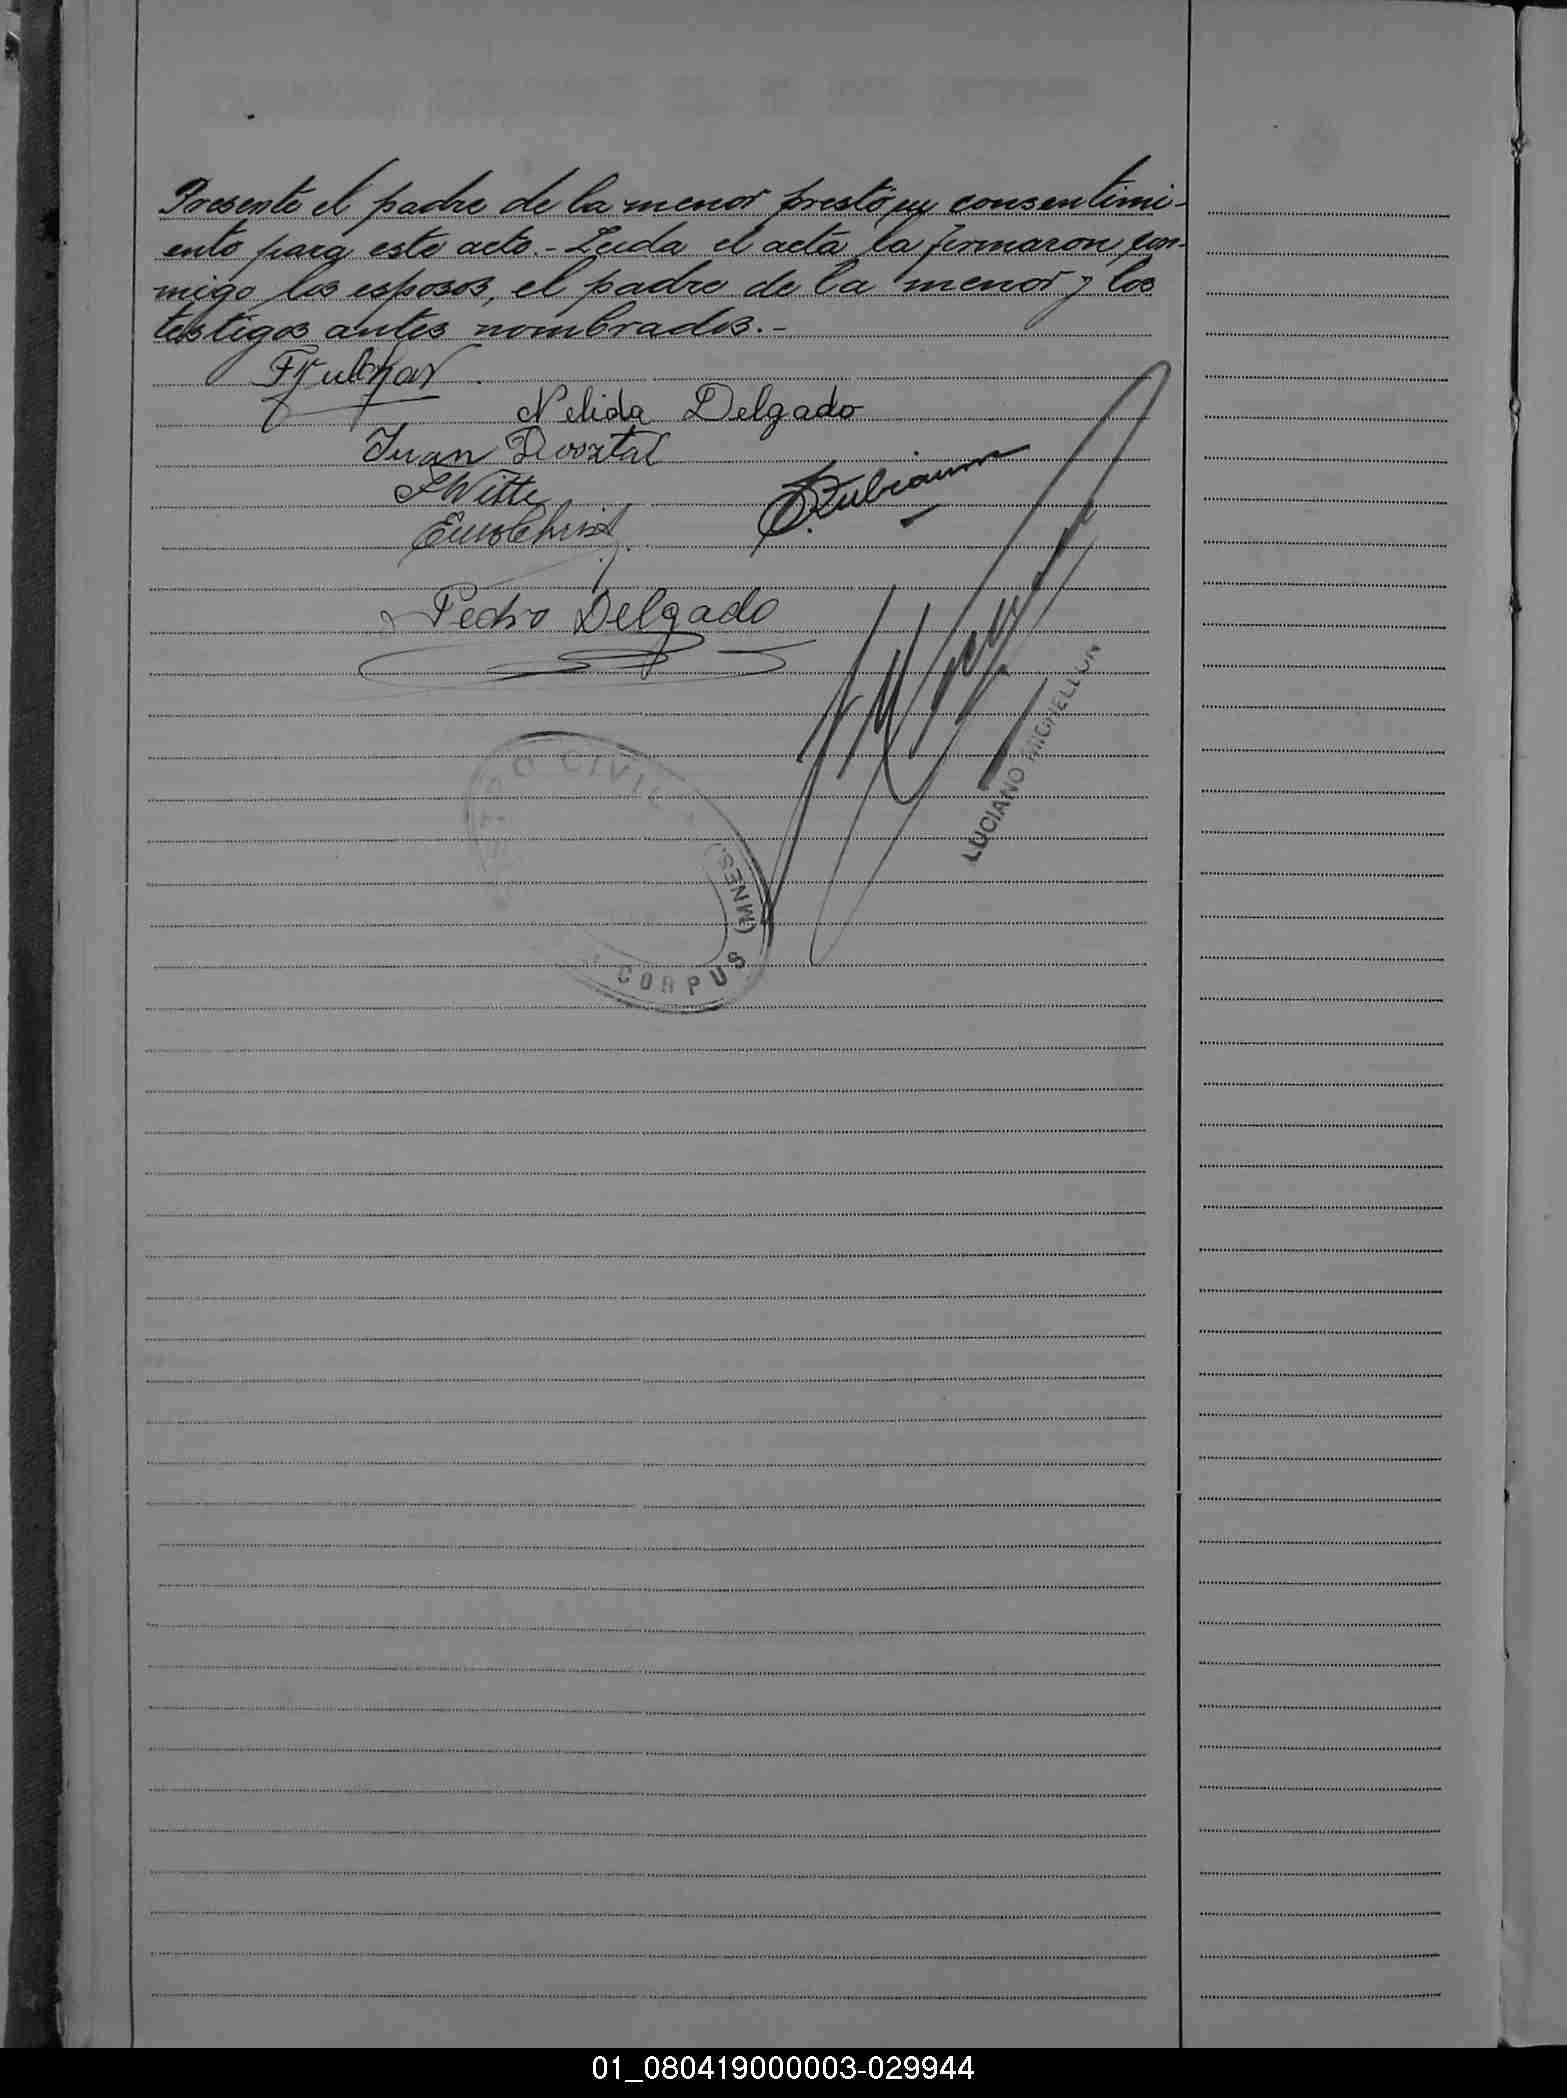 Presente el padre de la menor prestó su consentimi-
ento para este acto.- Leida el acta la firmaron con-
migo los esposos, el padre de la menor y los
testigos antes nombrados.-
Nelida Delgado
Juan
FWitte
Pedro Delgado
LUCIANO MIGHELLON
CIVIL
CORPUS (MNES.)
01_080419000003-029944